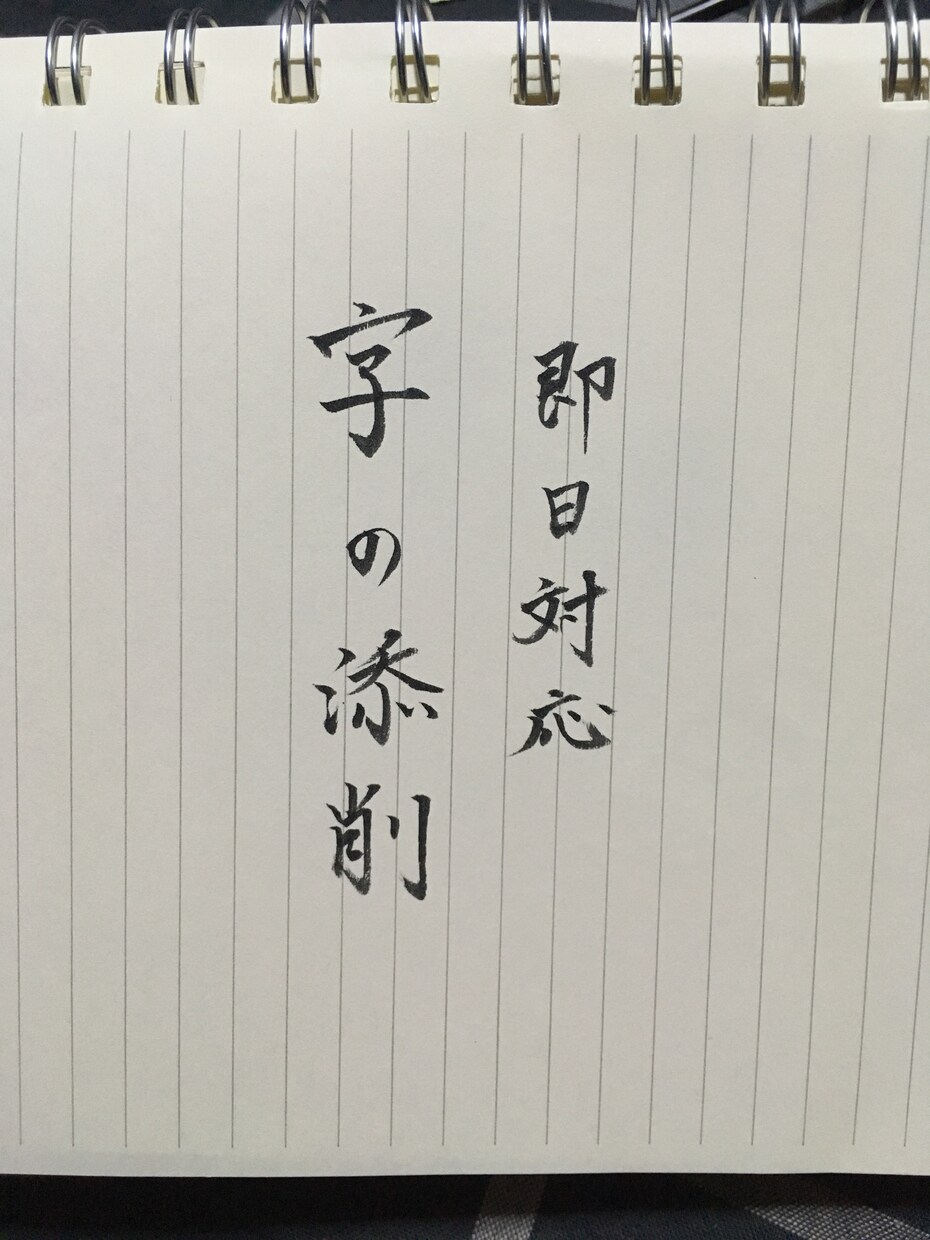 即日対応
字の添削